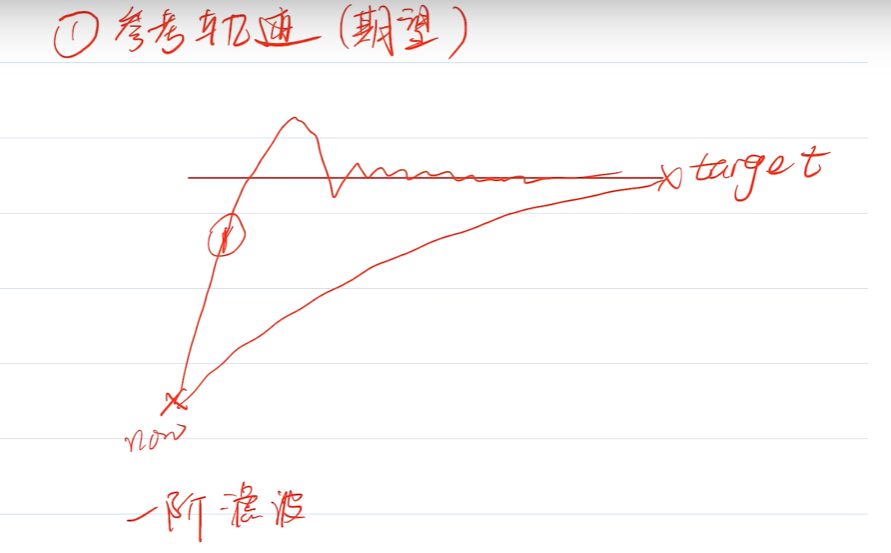 ① 参考轨迹 (期望)
target
now
一阶滤波